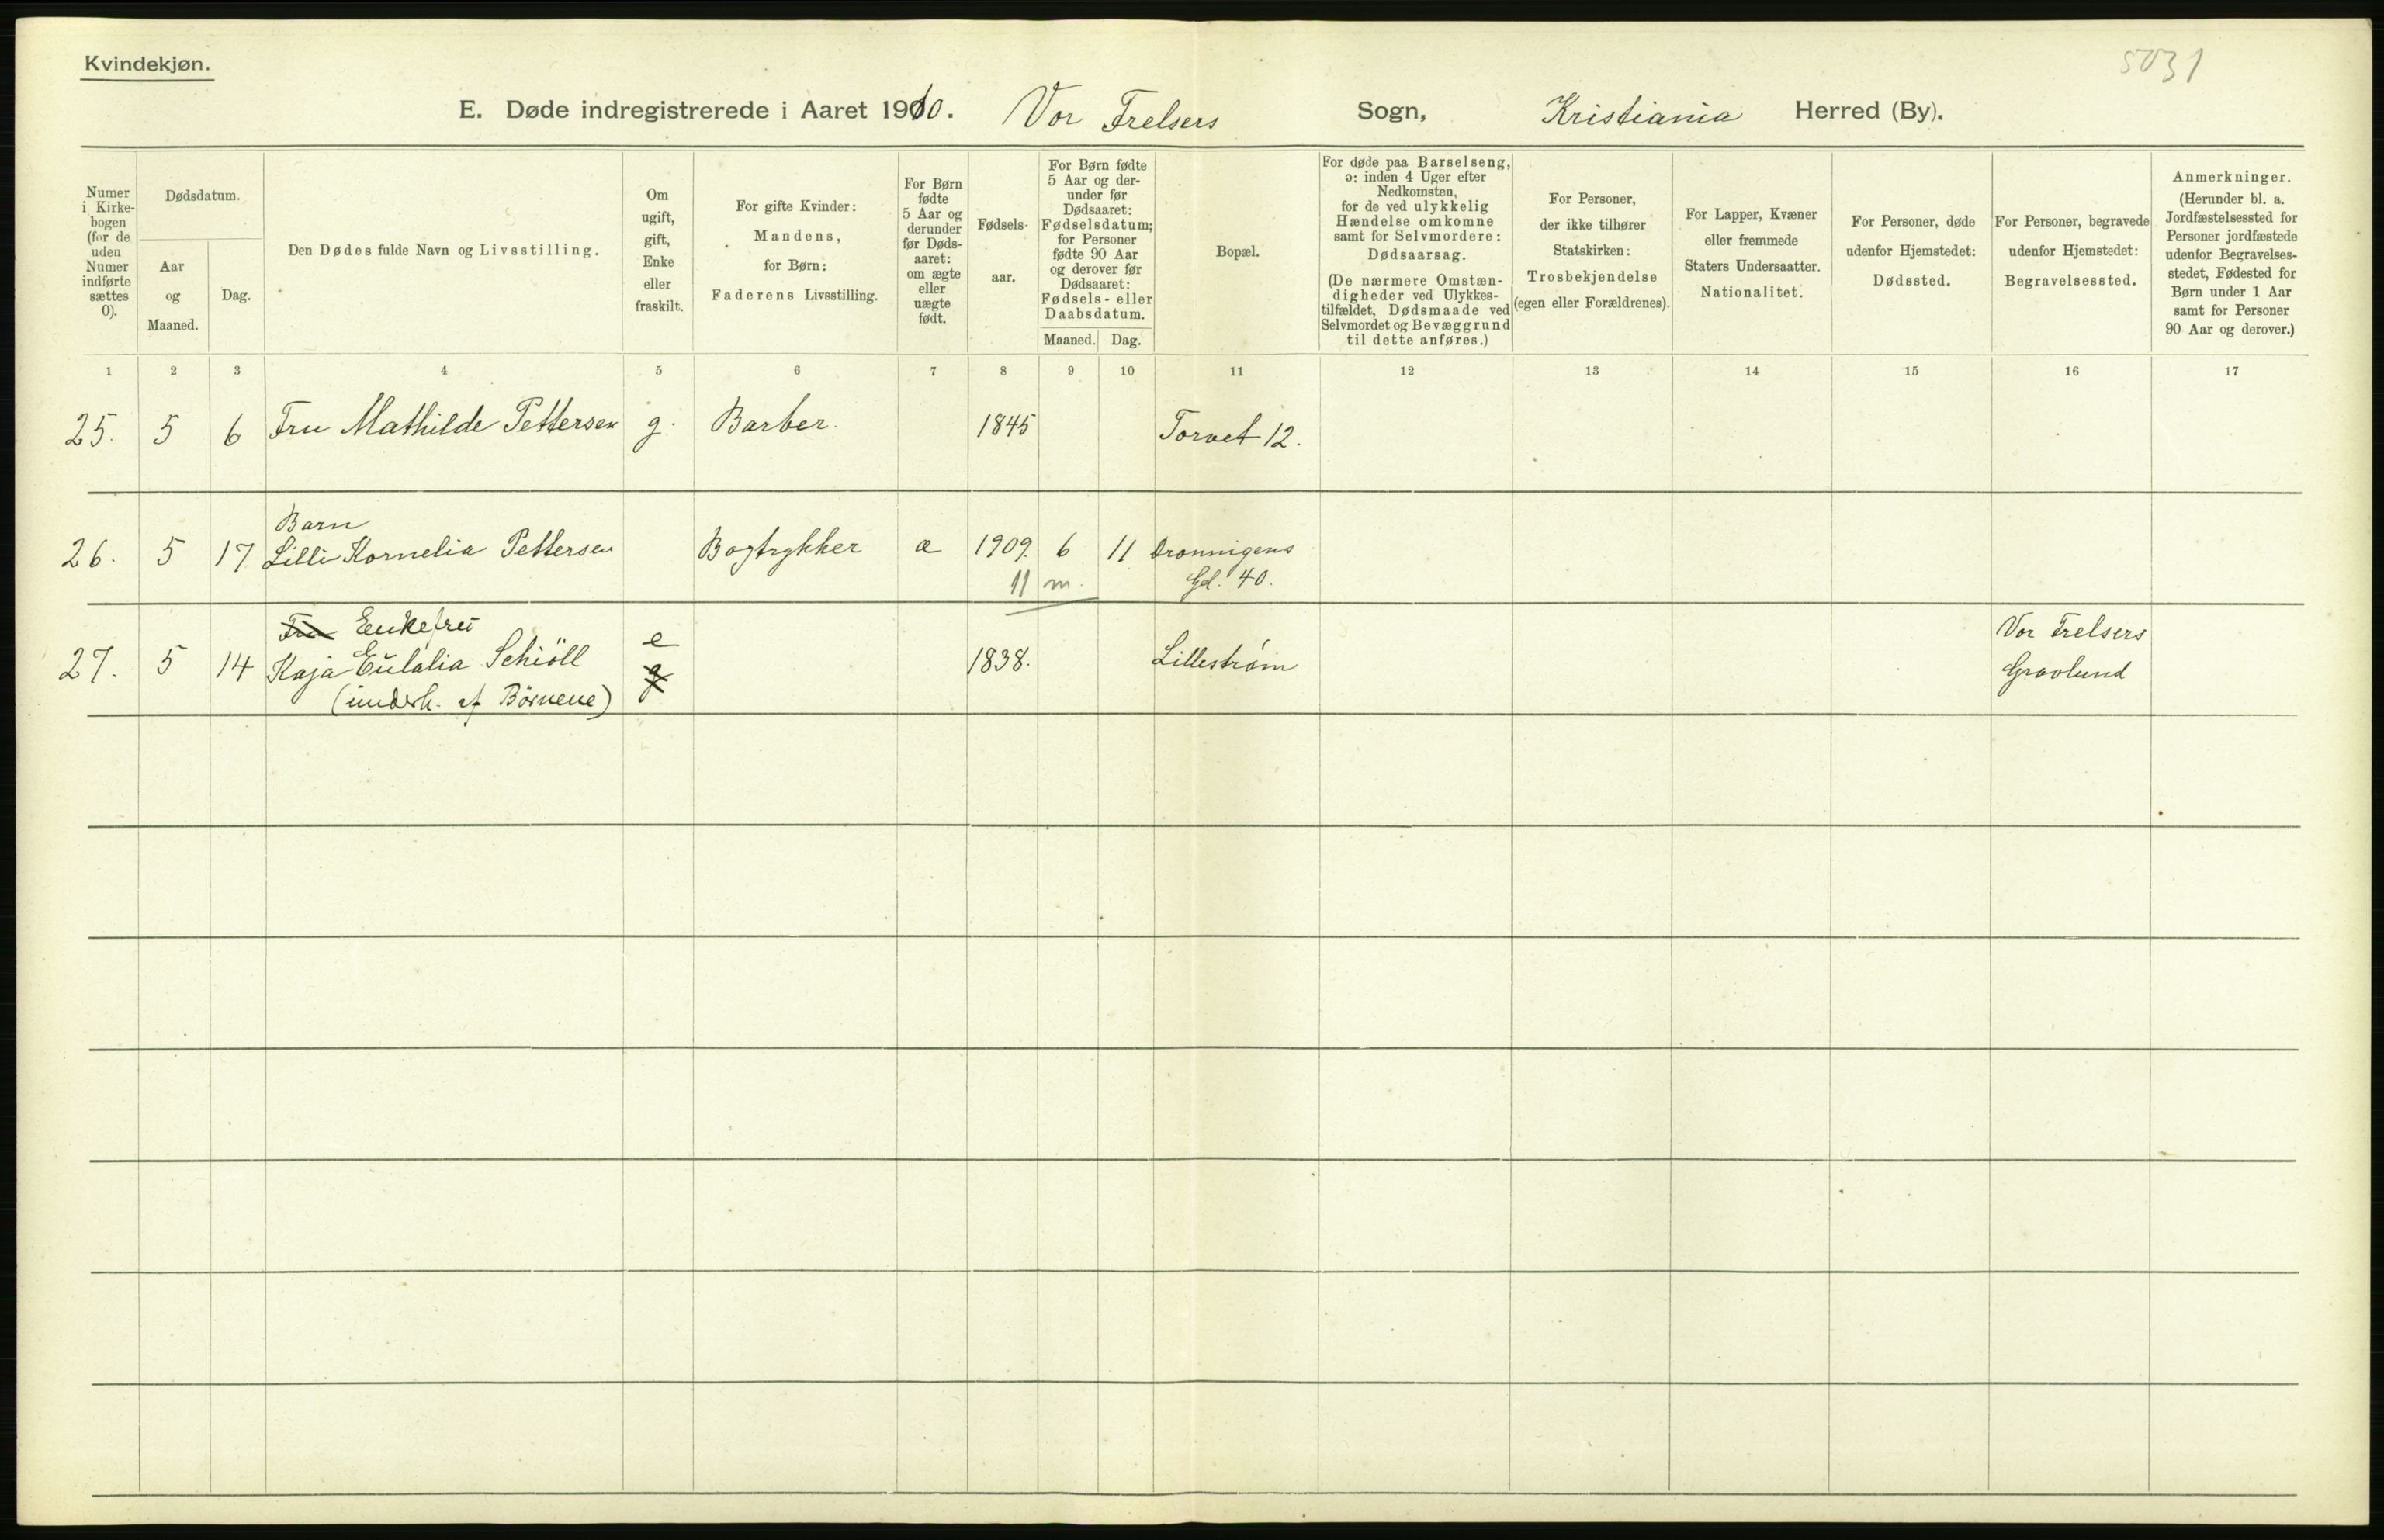 Kvindekjøn.
5031
E. Døde indregistrerede i Aaret 1910. Vor Frelsers Sogn, Kristiania Herred (By).
Numer
i Kirke-
bogen
(for de
uden
Numer
indførte
sættes
0).
Dødsdatum.
Aar
og
Maaned.
Dag.
Den Dødes fulde Navn og Livsstilling.
Om
ugift,
gift,
Enke
eller
fraskilt.
For gifte Kvinder:
Mandens,
for Børn:
Faderens Livsstilling.
For Børn
fødte
5 Aar og
derunder
før Døds-
aaret:
om ægte
eller
uægte
født.
Fødsels-
aar.
For Børn fødte
5 Aar og der-
under før
Dødsaaret:
Fødselsdatum;
for Personer
fødte 90 Aar
og derover før
Dødsaaret:
Fødsels- eller
Daabsdatum.
Maaned. Dag.
Bopæl.
For døde paa Barselseng,
ɔ: inden 4 Uger efter
Nedkomsten,
for de ved ulykkelig
Hændelse omkomne
samt for Selvmordere:
Dødsaarsag.
(De nærmere Omstæn-
digheder ved Ulykkes-
tilfældet, Dødsmaade ved
Selvmordet og Bevæggrund
til dette anføres.)
For Personer,
der ikke tilhører
Statskirken:
Trosbekjendelse
(egen eller Forældrenes).
For Lapper, Kvæner
eller fremmede
Staters Undersaatter.
Nationalitet.
For Personer, døde
udenfor Hjemstedet:
Dødssted.
For Personer, begravede
udenfor Hjemstedet:
Begravelsessted.
Anmerkninger.
(Herunder bl. a.
Jordfæstelsessted for
Personer jordfæstede
udenfor Begravelses-
stedet, Fødested for
Børn under 1 Aar
samt for Personer
90 Aar og derover.)
1 2 3 4 5 6 7 8 9 10 11 12 13 14 15 16 17
25. 5 6 Fru Mathilde Pettersen g. Barber. 1845 Torvet 12.
Barn
26. 5 17 Lilli Kornelia Pettersen Bogtrykker æ 1909. 6 11 Dronnigens
11 m. Gd. 40.
Fru Enkefru e Vor Frelsers
27. 5 14 Kaja Eulalia Schiöll g 1838. Lillestrøm Gravlund
(underh. af Börnene)